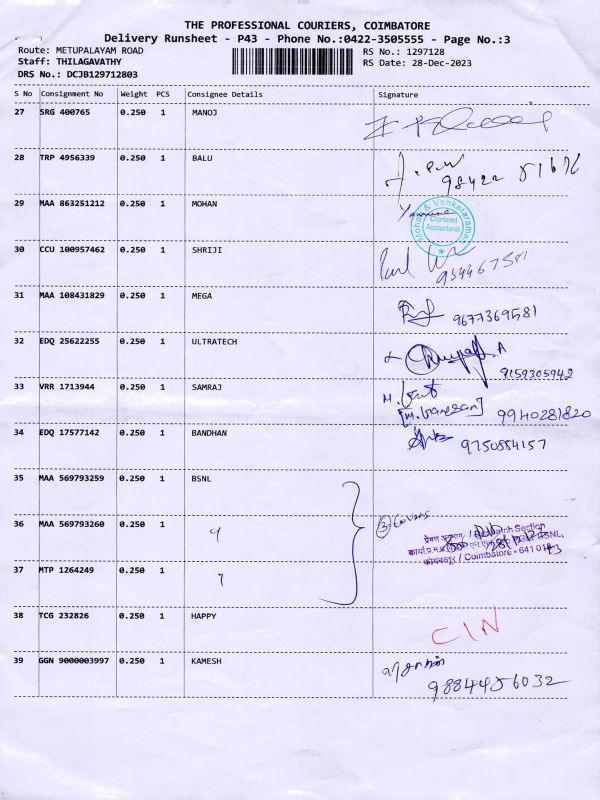 THE PROFESSIONAL COURIERS, COIMBATORE
Delivery Runsheet - P43 - Phone No.:0422-3505555 - Page No.:3
Route: METUPALAYAM ROAD RS No.: 1297128
Staff: THILAGAVATHY RS Date: 28-Dec-2023
DRS No.: DCJB129712803
S No Consignment No Weight PCS Consignee Details Signature
27 SRG 400765 0.250 1 MANOJ
28 TRP 4956339 0.250 1 BALU
29 MAA 863251212 0.250 1 MOHAN
Mohan & Venkataraman
Chartered
Accountants
30 CCU 100957462 0.250 1 SHRIJI
31 MAA 108431829 0.250 1 MEGA
9677369581
32 EDQ 25622255 0.250 1 ULTRATECH
9159305942
33 VRR 1713944 0.250 1 SAMRAJ
[M. Ganesan] 9940281820
34 EDQ 17577142 0.250 1 BANDHAN
9750884157
35 MAA 569793259 0.250 1 BSNL
36 MAA 569793260 0.250 1 "
3 Covers
कोयंबत्तूर / Coimbatore - 641 018
37 MTP 1264249 0.250 1 "
38 TCG 232826 0.250 1 HAPPY
CIN
39 GGN 9000003997 0.250 1 KAMESH
9884456032